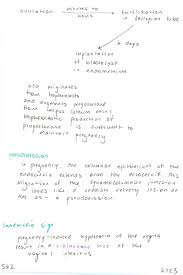 ovulation minutes to hours fertilization
in fallopian tube
days
implantation
of blastocyst
in endometrium
HCG originates
from trophoblasts
and augments progesterone
from corpus luteum until
trophoblastic production of
progesterone is sufficient to
maintain pregnancy
pregnancy, the columnar epithelium of the
endocervix extends onto the ectocervix. This
migration of the squamocolumnar junction
looks like a reddish velvety lesion on
the os - a pseudoerosion
Chadwick's sign
pregnancy-induced hyperemia of the vagina
result in a violaceous hue of the
vaginal introitus